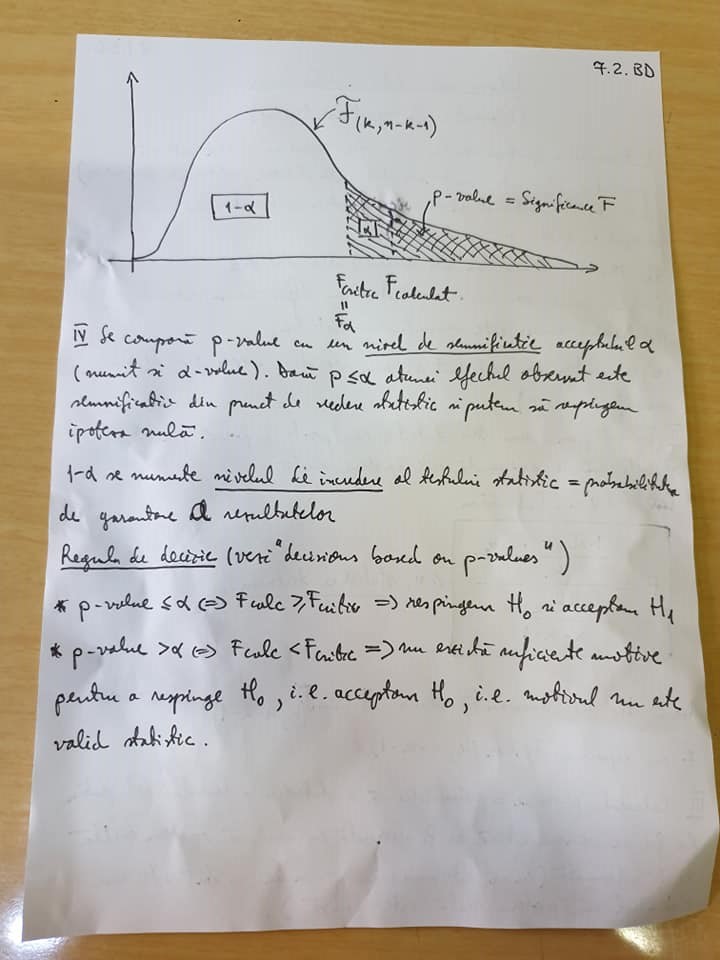 7.2. BD
F̃(k, n-k-1)
1-α
α
p-value = Significance F
Fcritic Fcalculat.
=
Fα
IV Se compară p-value cu un nivel de semnificație acceptabil α
(numit și α-value). Dacă p≤α atunci efectul observat este
semnificativ din punct de vedere statistic și putem să respingem
ipoteza nulă.
1-α se numește nivelul de încredere al testului statistic = probabilitatea
de garantare a rezultatelor
Regula de decizie (vezi "decisions based on p-values")
* p-value ≤ α <=> Fcalc ≥ Fcritic => respingem H0 și acceptăm H1
* p-value > α <=> Fcalc < Fcritic => nu există suficiente motive
pentru a respinge H0, i.e. acceptăm H0, i.e. nu este
valid statistic.